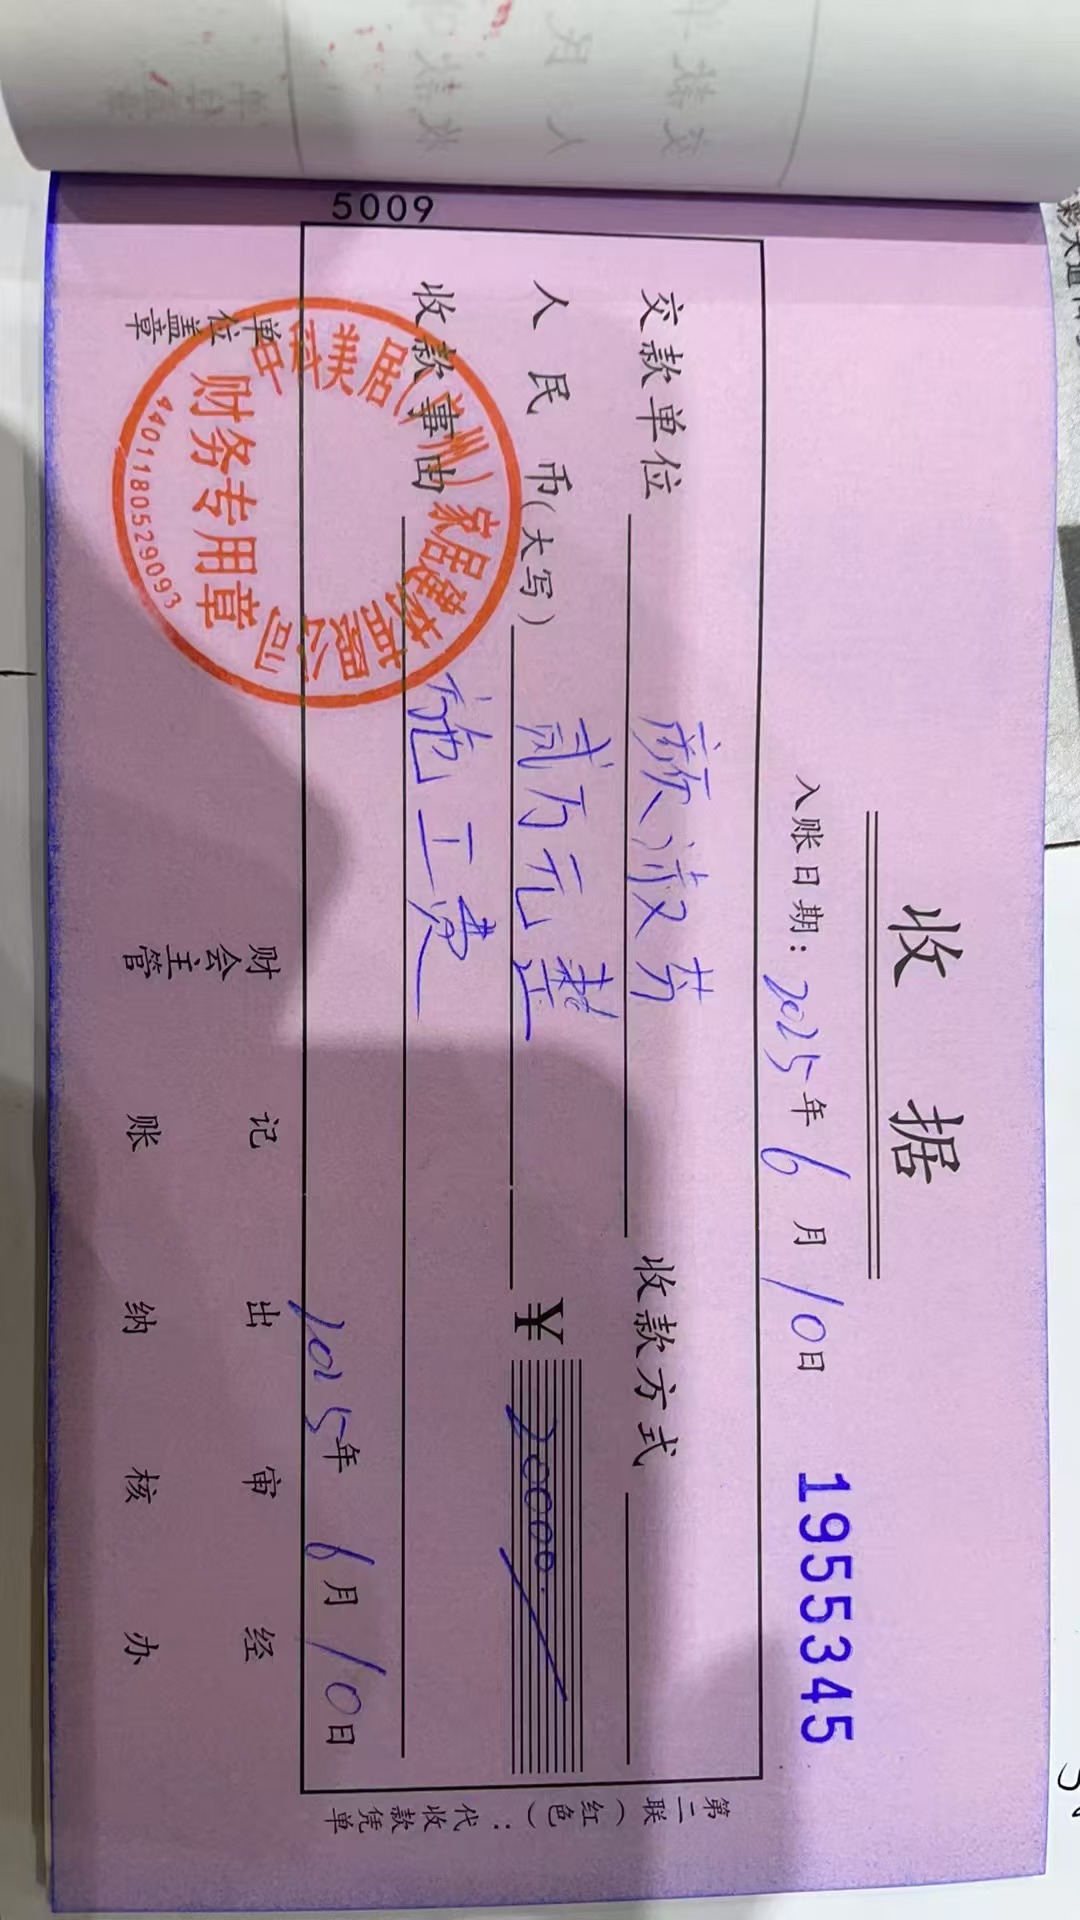 收 据
入账日期: 2025年 6 月 10日 1955345
交款单位 颜淑芳 收款方式
人民币(大写) 贰万元整 ¥ 20000.
收款事由 施工费
2025年 6月 10日
单位盖章 财会主管 记账 出纳 审核 经办
5009
第二联（红色）：代收款凭单
美居(广州)家居建材有限公司
财务专用章
4401180529093